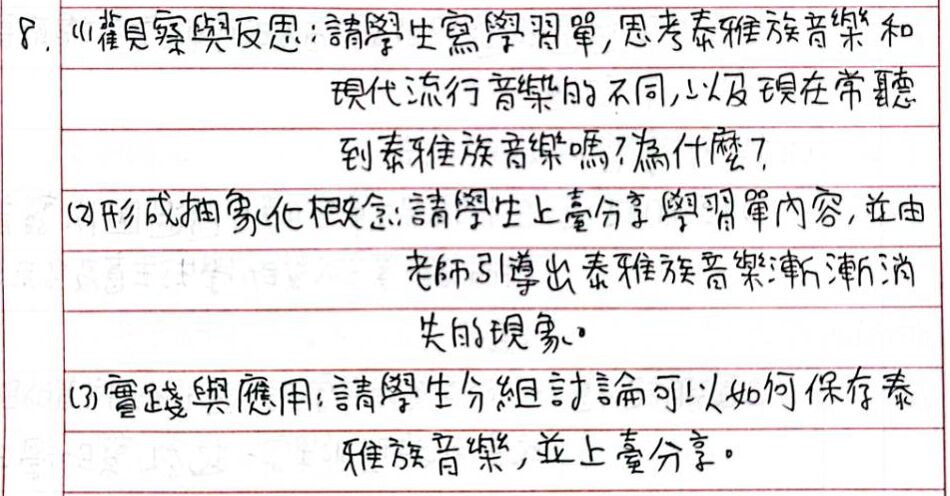 8. (1)觀察與反思:請學生寫學習單,思考泰雅族音樂和
現代流行音樂的不同,以及現在常聽
到泰雅族音樂嗎?為什麼?
(2)形成抽象化概念:請學生上臺分享學習單內容,並由
老師引導出泰雅族音樂漸漸消
失的現象。
(3)實踐與應用:請學生分組討論可以如何保存泰
雅族音樂,並上臺分享。